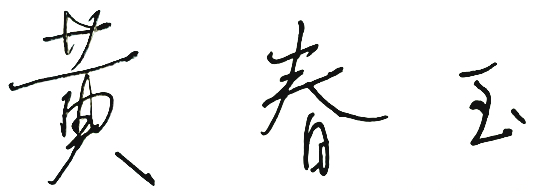 黄春玉